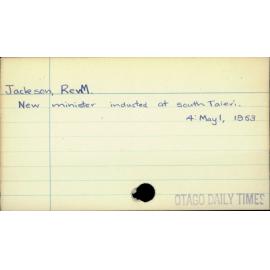 Jackson, Rev M.
New minister inducted at south Taieri.
4: May 1, 1963
OTAGO DAILY TIMES